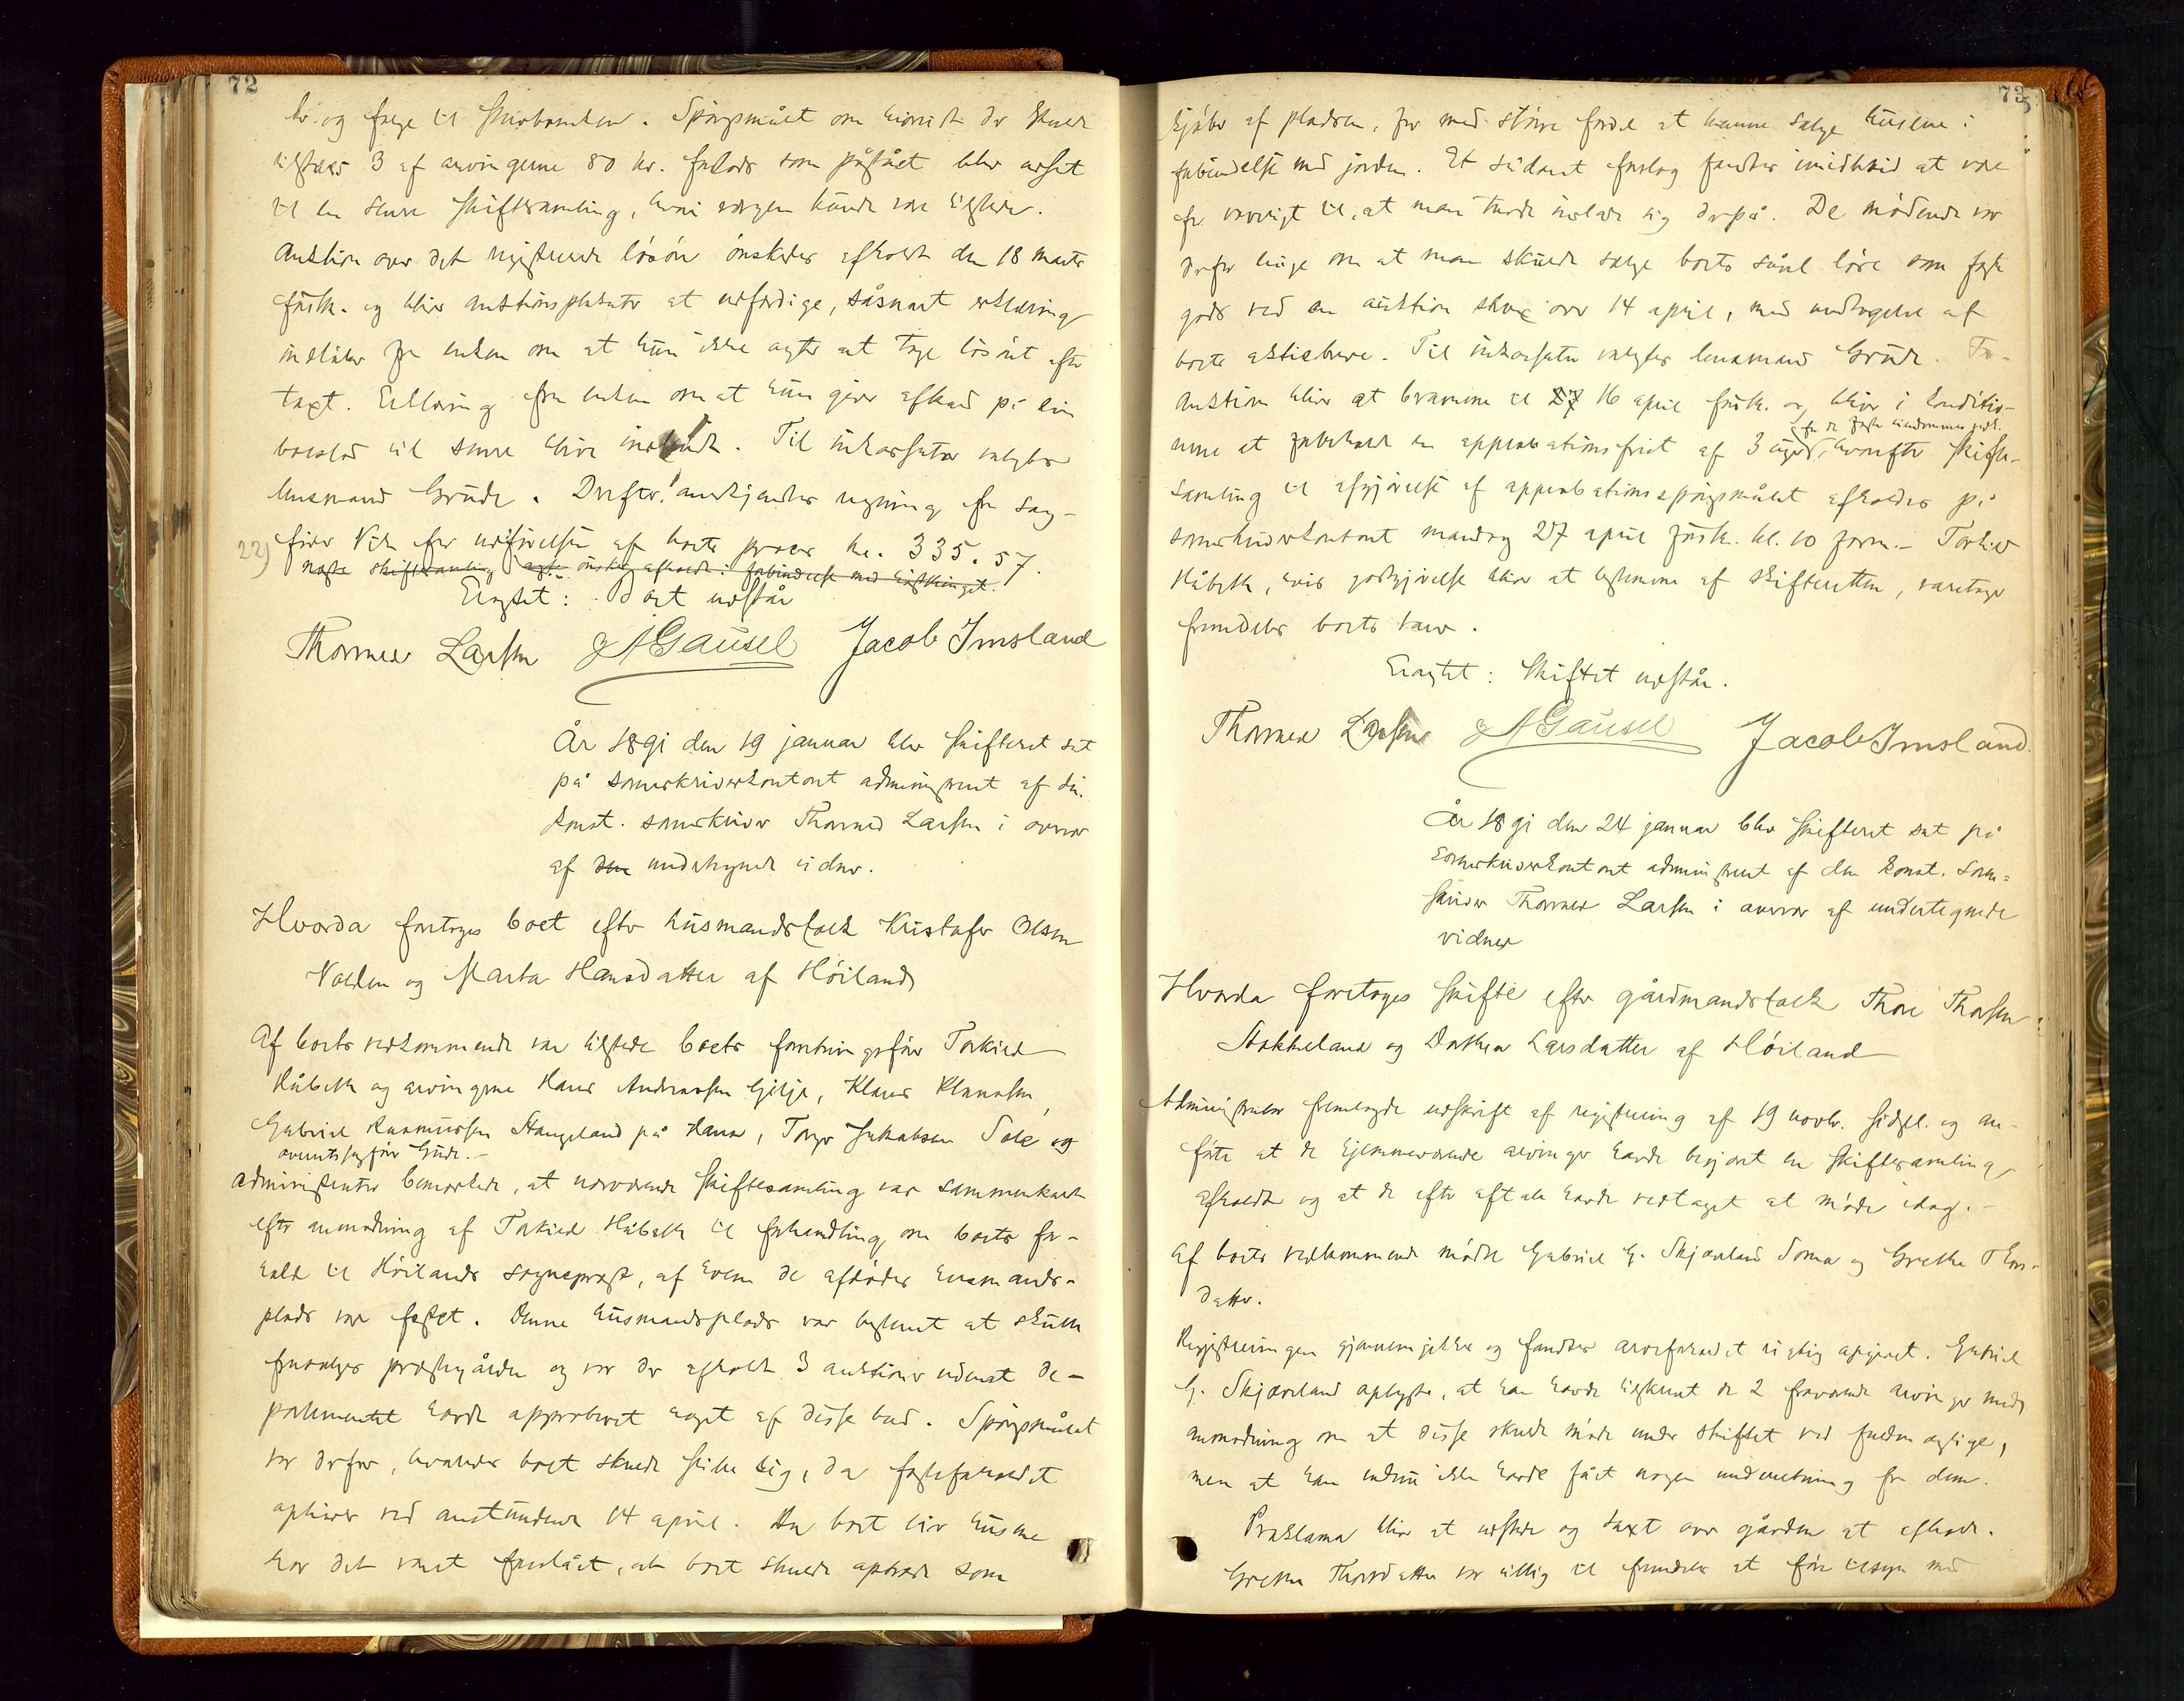 72
kr. og følge til skiøbanken. Spörgsmålet om hvorvidt der skulde
tilståes 3 af arvingerne 80 kr. forlods som påstået blev udsat
til en senere skiftesamling, hvori værgen kunde være tilstede.
Auktion over det registrerede lösöre önskedes afholdt den 18 marts
förstk. og bliver auktionsplakater at udfærdige, såsnart erklæring
indlöber fra enken om at hun ikke agter at tage lösöret efter
taxt. Erklæring fra enken om at hun giver afkald på sin
boeslod vil senere blive indsendt. Til inkassator valgtes
lensmand Grude. Derefter anerkjendtes regning fra sag-
förer for udförelsen af boets proces kr. 335.57.
22)
næste skiftesamling önskes afholdt i forbindelse med höstthinget.
Eragtet: Boet udstår
Thormod Larsen A Gausel Jacob Imsland
År 1891 den 19 januar blev skifteret sat
på sorenskriverkontoret administreret af den
konst. sorenskriver Thormod Larsen i overvær
af den undertegnede vidner.
Hvorda foretoges boet efter husmandsfolk Kristofer Olsen
Volden og Marta Hansdatter af Höiland
Af boets vedkommende var tilstede boets forretningsförer Torkild
Håbeth og arvingerne Hans Andreassen Gilje, Klaus Klausen,
Gabriel Rasmussen Stangeland på Hana, Torger Jakobsen Sele og
overretssagförer Gude.-
Administrator bemærkede, at nærværende skiftesamling var sammenkaldt
efter anmodning af Torkild Håbeth til forhandling om boets for-
hold til Höilands sogneprest, af hvem de afdödes husmands-
plads var fæstet. Denne husmandsplads var bestemt at skulle
frasælges præstegården og var der afholdt 3 auktioner uden at de-
partementet havde approberet noget af disse bud. Spörgsmålet
var derfor, hvorledes boet skulde stille sig, da fæsteforholdet
ophörer ved anstundende 14 april. Da boet eier husene
har det været foreslået, at boet skulde optræde som
73
kjöber af pladsen, for med större fordel at kunne sælge husene i
forbindelse med jorden. Et sådant forslag fandtes imidlertid at være
for vovelig til, at man turde indlade sig derpå. De mödende var
derfor enige om at man skulde sælge boets såvel löse som faste
gods ved en auktion strax over 14 april, med undtagelse af
boets aktiebreve. Til inkassator valgtes lensmand Grude. To-
Auktion bliver at beramme til 27 16 april förstk. og bliver i konditio-
for de faste eiendommes vedk.
nerne at forbeholde en approbationsfrist af 3 uger, hvorefter skifte-
samling til afgjörelse af approbationsspörgsmålet afholdes på
sorenskriverkontoret mandag 27 april förstk. kl. 10 form.- Torkild
Håbeth, hvis godtgjörelse bliver at bestemme af skifteretten, varetager
fremdeles boets tarv.
Eragtet: Skiftet udstår.
Thormod Larsen A Gausel Jacob Imsland.
År 1891 den 24 januar blev skifteret sat på
sorenskriverkontoret administreret af den konst. soren=
skriver Thormod Larsen i overvær af undertegnede
vidner
Hvorda foretoges skifte efter gårdmandsfolk Thore Thorsen
Stokkeland og Dorthea Larsdatter af Höiland
Administrator fremlagde udskrift af registrering af 19 novbr. sidstl. og an-
förte at de hjemmeværende arvinger havde begjæret en skiftesamling
afholdt og at de efter aftale havde vedtaget at möde idag.-
Af boets vedkommende mödte Gabriel G. Skjæveland Soma og Grethe Thors-
datter.
Registreringen gjennemgikkes og fandtes arveforholdet rigtig opgivet. Gabriel
G. Skjæveland oplyste, at han havde tilskrevet de 2 fraværende arvinger med
anmodning om at disse skulde möde under skiftet ved fuldmægtige,
men at han endnu ikke havde fået nogen underretning fra dem.
Proklama bliver at udstede og taxt over gården at afholde.
Grethe Thorsdatter var villig til fremdeles at före tilsyn med